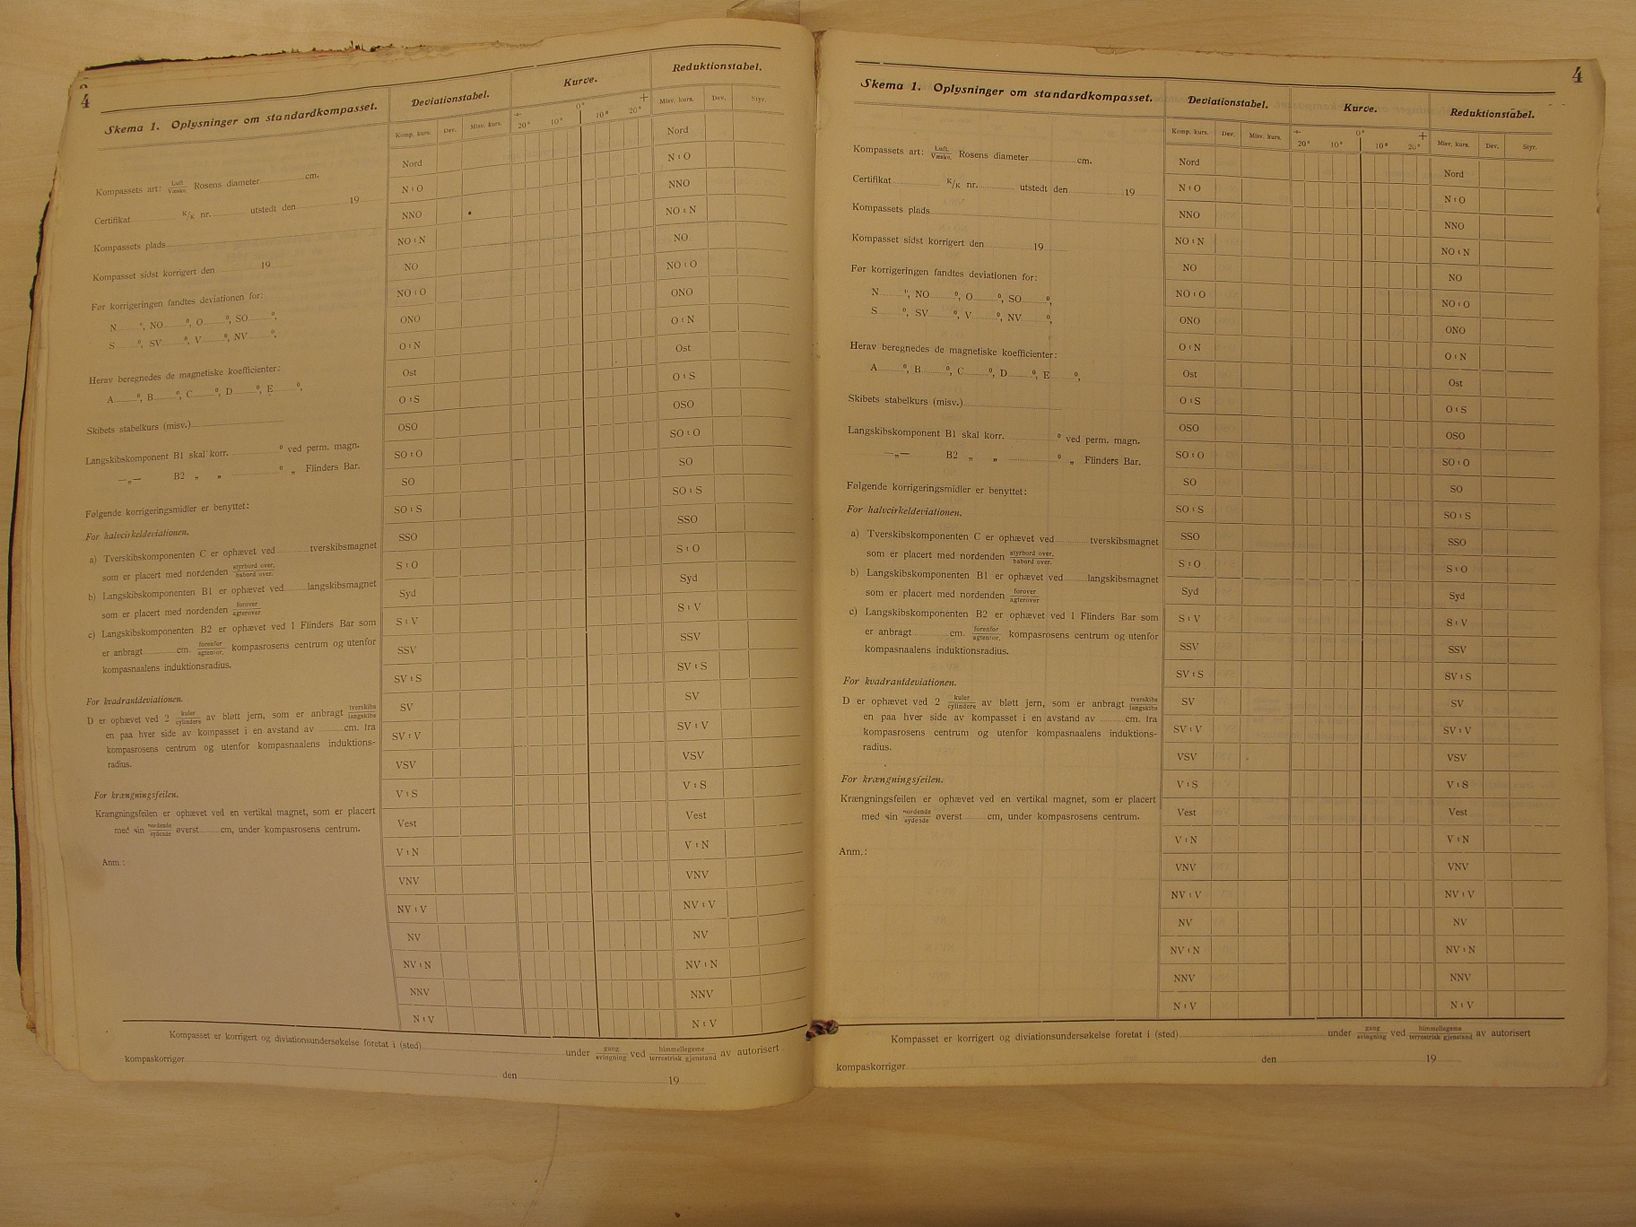 4
Skema 1. Oplysninger om standardkompasset.
Kompassets art: Luft. / Væske. Rosens diameter cm.
Certifikat K/K nr. utstedt den 19
Kompassets plads
Kompasset sidst korrigert den 19
Før korrigeringen fandtes deviationen for:
N °, NO °, O °, SO °,
S °, SV °, V °, NV °,
Herav beregnedes de magnetiske koefficienter:
A °, B °, C °, D °, E °,
Skibets stabelkurs (misv.)
Langskibskomponent B1 skal korr. ° ved perm. magn.
—„— B2 „ „ ° „ Flinders Bar.
Følgende korrigeringsmidler er benyttet:
For halvcirkeldeviationen.
a) Tverskibskomponenten C er ophævet ved tverskibsmagnet
som er placert med nordenden styrbord over. / babord over.
b) Langskibskomponenten B1 er ophævet ved langskibsmagnet
som er placert med nordenden forover / agterover
c) Langskibskomponenten B2 er ophævet ved 1 Flinders Bar som
er anbragt cm. forenfor / agtenfor. kompasrosens centrum og utenfor
kompasnaalens induktionsradius.
For kvadrantdeviationen.
D er ophævet ved 2 kuler / cylindere av bløtt jern, som er anbragt tverskibs / langskibs
en paa hver side av kompasset i en avstand av cm. fra
kompasrosens centrum og utenfor kompasnaalens induktions-
radius.
For krængningsfeilen.
Krængningsfeilen er ophævet ved en vertikal magnet, som er placert
med sin nordende / sydende øverst cm, under kompasrosens centrum.
Anm.:
Deviationstabel.
Komp. kurs. Dev. Misv. kurs.
Nord
N t O
NNO
NO t N
NO
NO t O
ONO
O t N
Ost
O t S
OSO
SO t O
SO
SO t S
SSO
S t O
Syd
S t V
SSV
SV t S
SV
SV t V
VSV
V t S
Vest
V t N
VNV
NV t V
NV
NV t N
NNV
N t V
Kurve.
÷ 0° +
20° 10° 10° 20°
Reduktionstabel.
Misv. kurs. Dev. Styr.
Nord
N t O
NNO
NO t N
NO
NO t O
ONO
O t N
Ost
O t S
OSO
SO t O
SO
SO t S
SSO
S t O
Syd
S t V
SSV
SV t S
SV
SV t V
VSV
V t S
Vest
V t N
VNV
NV t V
NV
NV t N
NNV
N t V
Kompasset er korrigert og diviationsundersøkelse foretat i (sted) under gang / svingning ved himmellegeme / terrestrisk gjenstand av autorisert
kompaskorrigør den 19
4
Skema 1. Oplysninger om standardkompasset.
Kompassets art: Luft. / Væske. Rosens diameter cm.
Certifikat K/K nr. utstedt den 19
Kompassets plads
Kompasset sidst korrigert den 19
Før korrigeringen fandtes deviationen for:
N °, NO °, O °, SO °,
S °, SV °, V °, NV °,
Herav beregnedes de magnetiske koefficienter:
A °, B °, C °, D °, E °,
Skibets stabelkurs (misv.)
Langskibskomponent B1 skal korr. ° ved perm. magn.
—„— B2 „ „ ° „ Flinders Bar.
Følgende korrigeringsmidler er benyttet:
For halvcirkeldeviationen.
a) Tverskibskomponenten C er ophævet ved tverskibsmagnet
som er placert med nordenden styrbord over. / babord over.
b) Langskibskomponenten B1 er ophævet ved langskibsmagnet
som er placert med nordenden forover / agterover
c) Langskibskomponenten B2 er ophævet ved 1 Flinders Bar som
er anbragt cm. forenfor / agtenfor. kompasrosens centrum og utenfor
kompasnaalens induktionsradius.
For kvadrantdeviationen.
D er ophævet ved 2 kuler / cylindere av bløtt jern, som er anbragt tverskibs / langskibs
en paa hver side av kompasset i en avstand av cm. fra
kompasrosens centrum og utenfor kompasnaalens induktions-
radius.
For krængningsfeilen.
Krængningsfeilen er ophævet ved en vertikal magnet, som er placert
med sin nordende / sydende øverst cm, under kompasrosens centrum.
Anm.:
Deviationstabel.
Komp. kurs. Dev. Misv. kurs.
Nord
N t O
NNO
NO t N
NO
NO t O
ONO
O t N
Ost
O t S
OSO
SO t O
SO
SO t S
SSO
S t O
Syd
S t V
SSV
SV t S
SV
SV t V
VSV
V t S
Vest
V t N
VNV
NV t V
NV
NV t N
NNV
N t V
Kurve.
÷ 0° +
20° 10° 10° 20°
Reduktionstabel.
Misv. kurs. Dev. Styr.
Nord
N t O
NNO
NO t N
NO
NO t O
ONO
O t N
Ost
O t S
OSO
SO t O
SO
SO t S
SSO
S t O
Syd
S t V
SSV
SV t S
SV
SV t V
VSV
V t S
Vest
V t N
VNV
NV t V
NV
NV t N
NNV
N t V
Kompasset er korrigert og diviationsundersøkelse foretat i (sted) under gang / svingning ved himmellegeme / terrestrisk gjenstand av autorisert
kompaskorrigør den 19